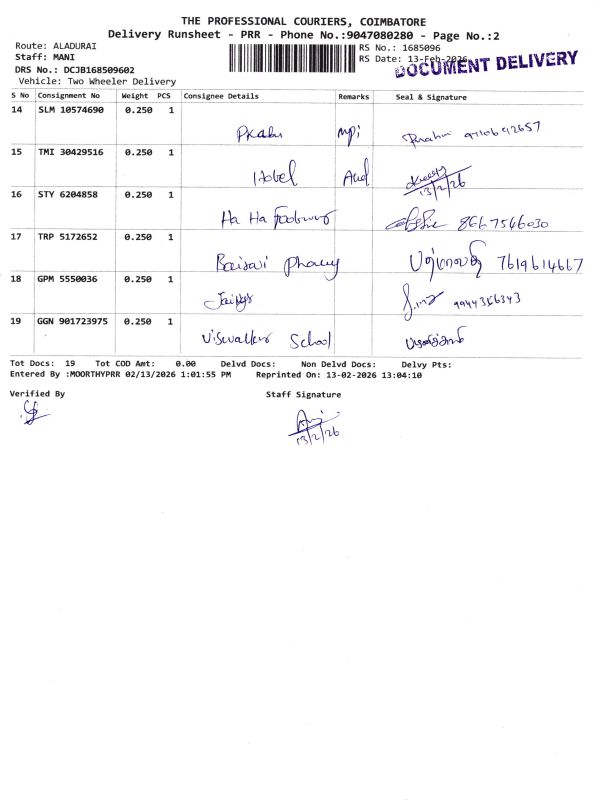 THE PROFESSIONAL COURIERS, COIMBATORE
Delivery Runsheet - PRR - Phone No.:9047080280 - Page No.:2
Route: ALADURAI
Staff: MANI
DRS No.: DCJB168509602
Vehicle: Two Wheeler Delivery
RS No.: 1685096
RS Date: 13-Feb-2026
DOCUMENT DELIVERY
S No Consignment No Weight PCS Consignee Details Remarks Seal & Signature
14 SLM 10574690 0.250 1
15 TMI 30429516 0.250 1
Hotel
13/2/26
16 STY 6204858 0.250 1
Ha Ha 8667546030
17 TRP 5172652 0.250 1
7619614667
18 GPM 5550036 0.250 1
9944356343
19 GGN 901723975 0.250 1
School
Tot Docs: 19 Tot COD Amt: 0.00 Delvd Docs: Non Delvd Docs: Delvy Pts:
Entered By :MOORTHYPRR 02/13/2026 1:01:55 PM Reprinted On: 13-02-2026 13:04:10
Verified By Staff Signature
13/2/26